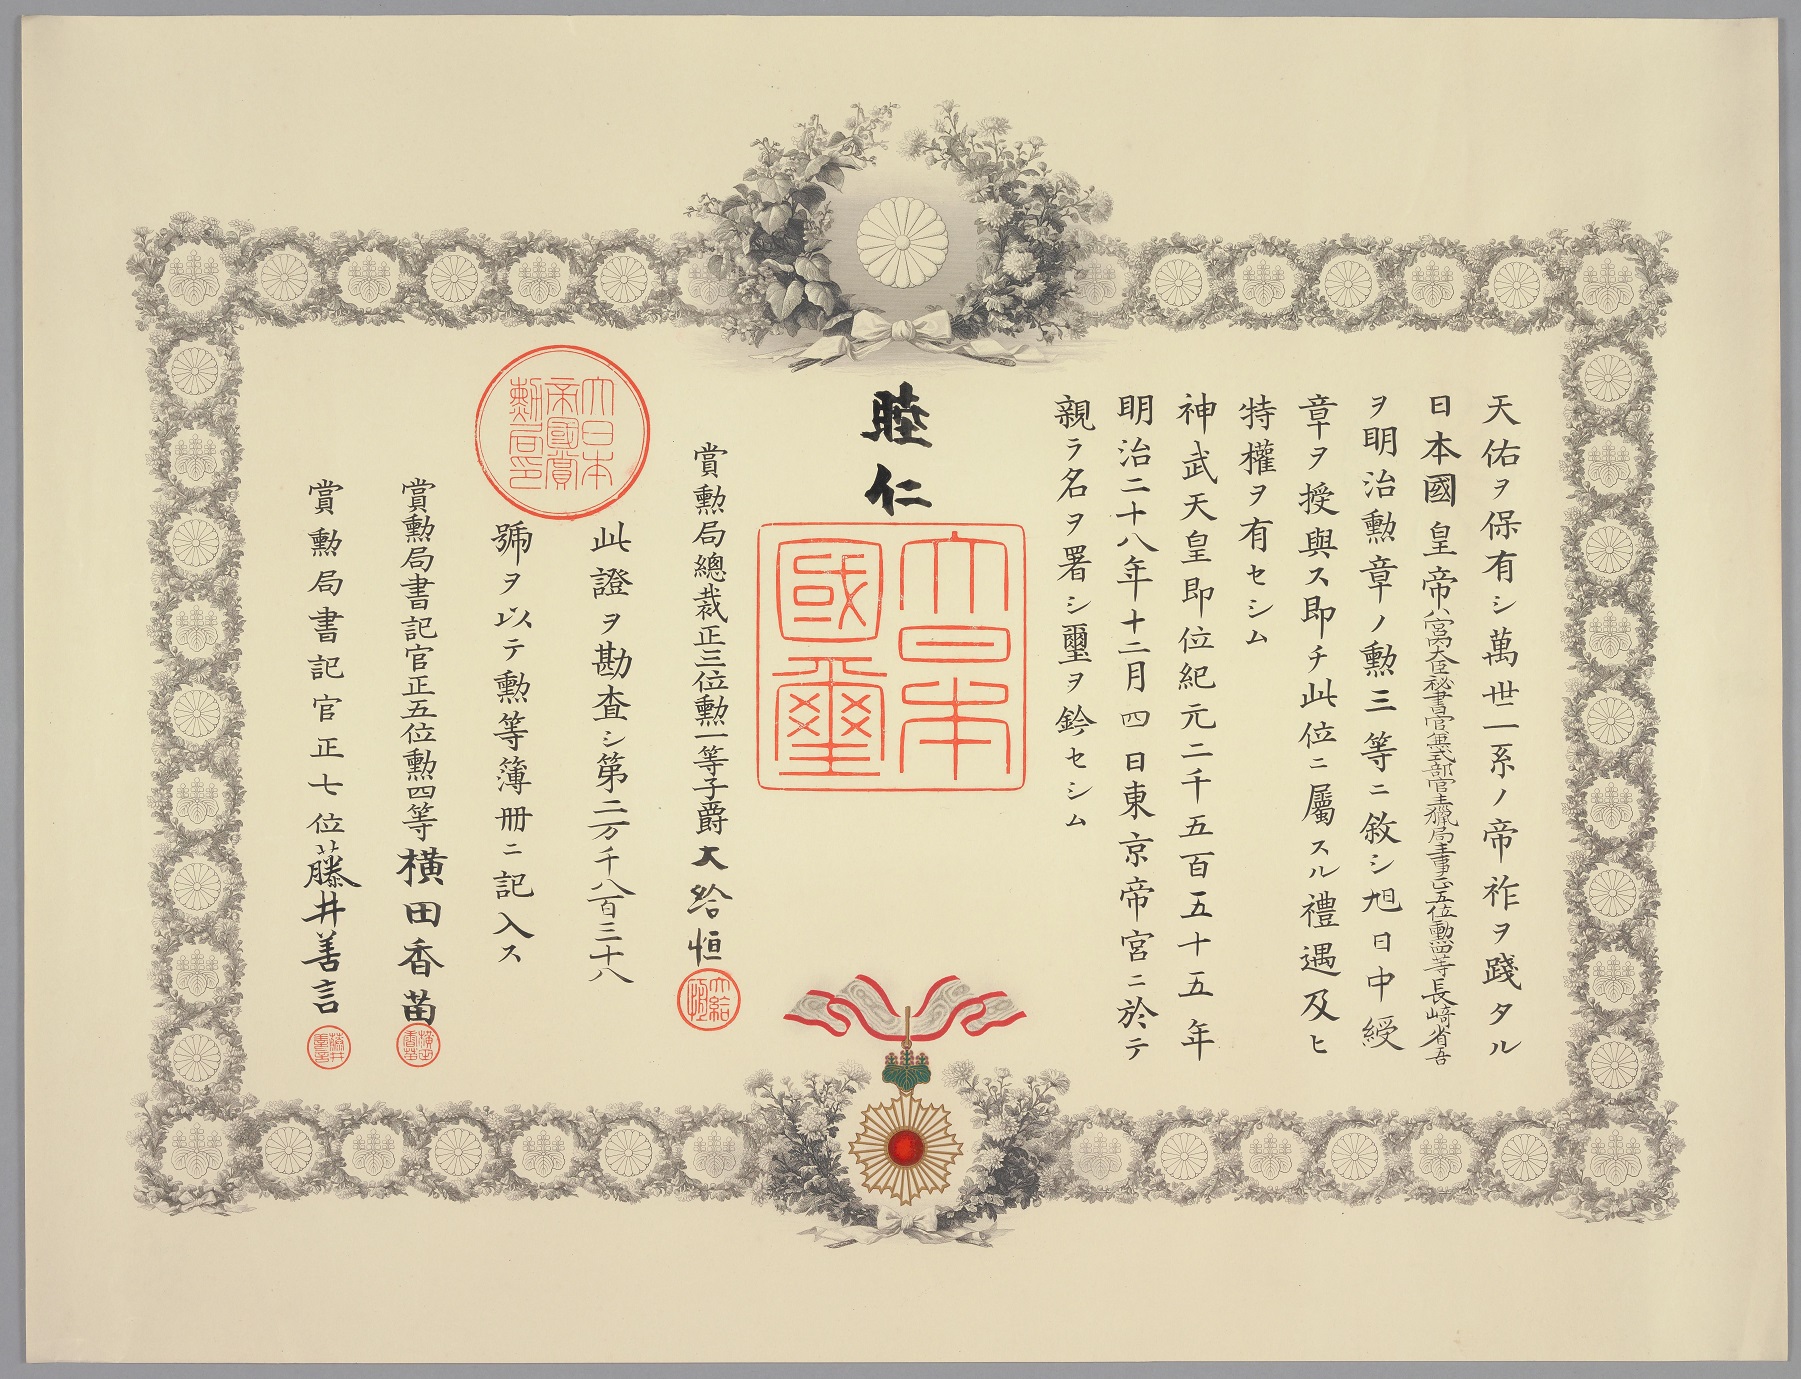 天佑ヲ保有シ萬世一系ノ帝祚ヲ踐タル
日本國皇帝ハ宮内大臣秘書官兼式部官主猟局主事正五位勲四等長崎省吾
ヲ明治勲章ノ勲三等ニ敘シ旭日中綬
章ヲ授與ス即チ此位ニ屬スル禮遇及ヒ
特權ヲ有セシム
神武天皇即位紀元二千五百五十五年
明治二十八年十二月四日東京帝宮ニ於テ
親ラ名ヲ署シ璽ヲ鈐セシム
睦仁
大日本
國璽
賞勲局總裁正三位勲一等子爵大給恒
大給
恒
此證ヲ勘査シ第二万千八百三十八
號ヲ以テ勲等簿冊ニ記入ス
大日本
帝國賞
勲局印
賞勲局書記官正五位勲四等横田香苗
横田
香苗
賞勲局書記官正七位藤井善言
藤井
善言